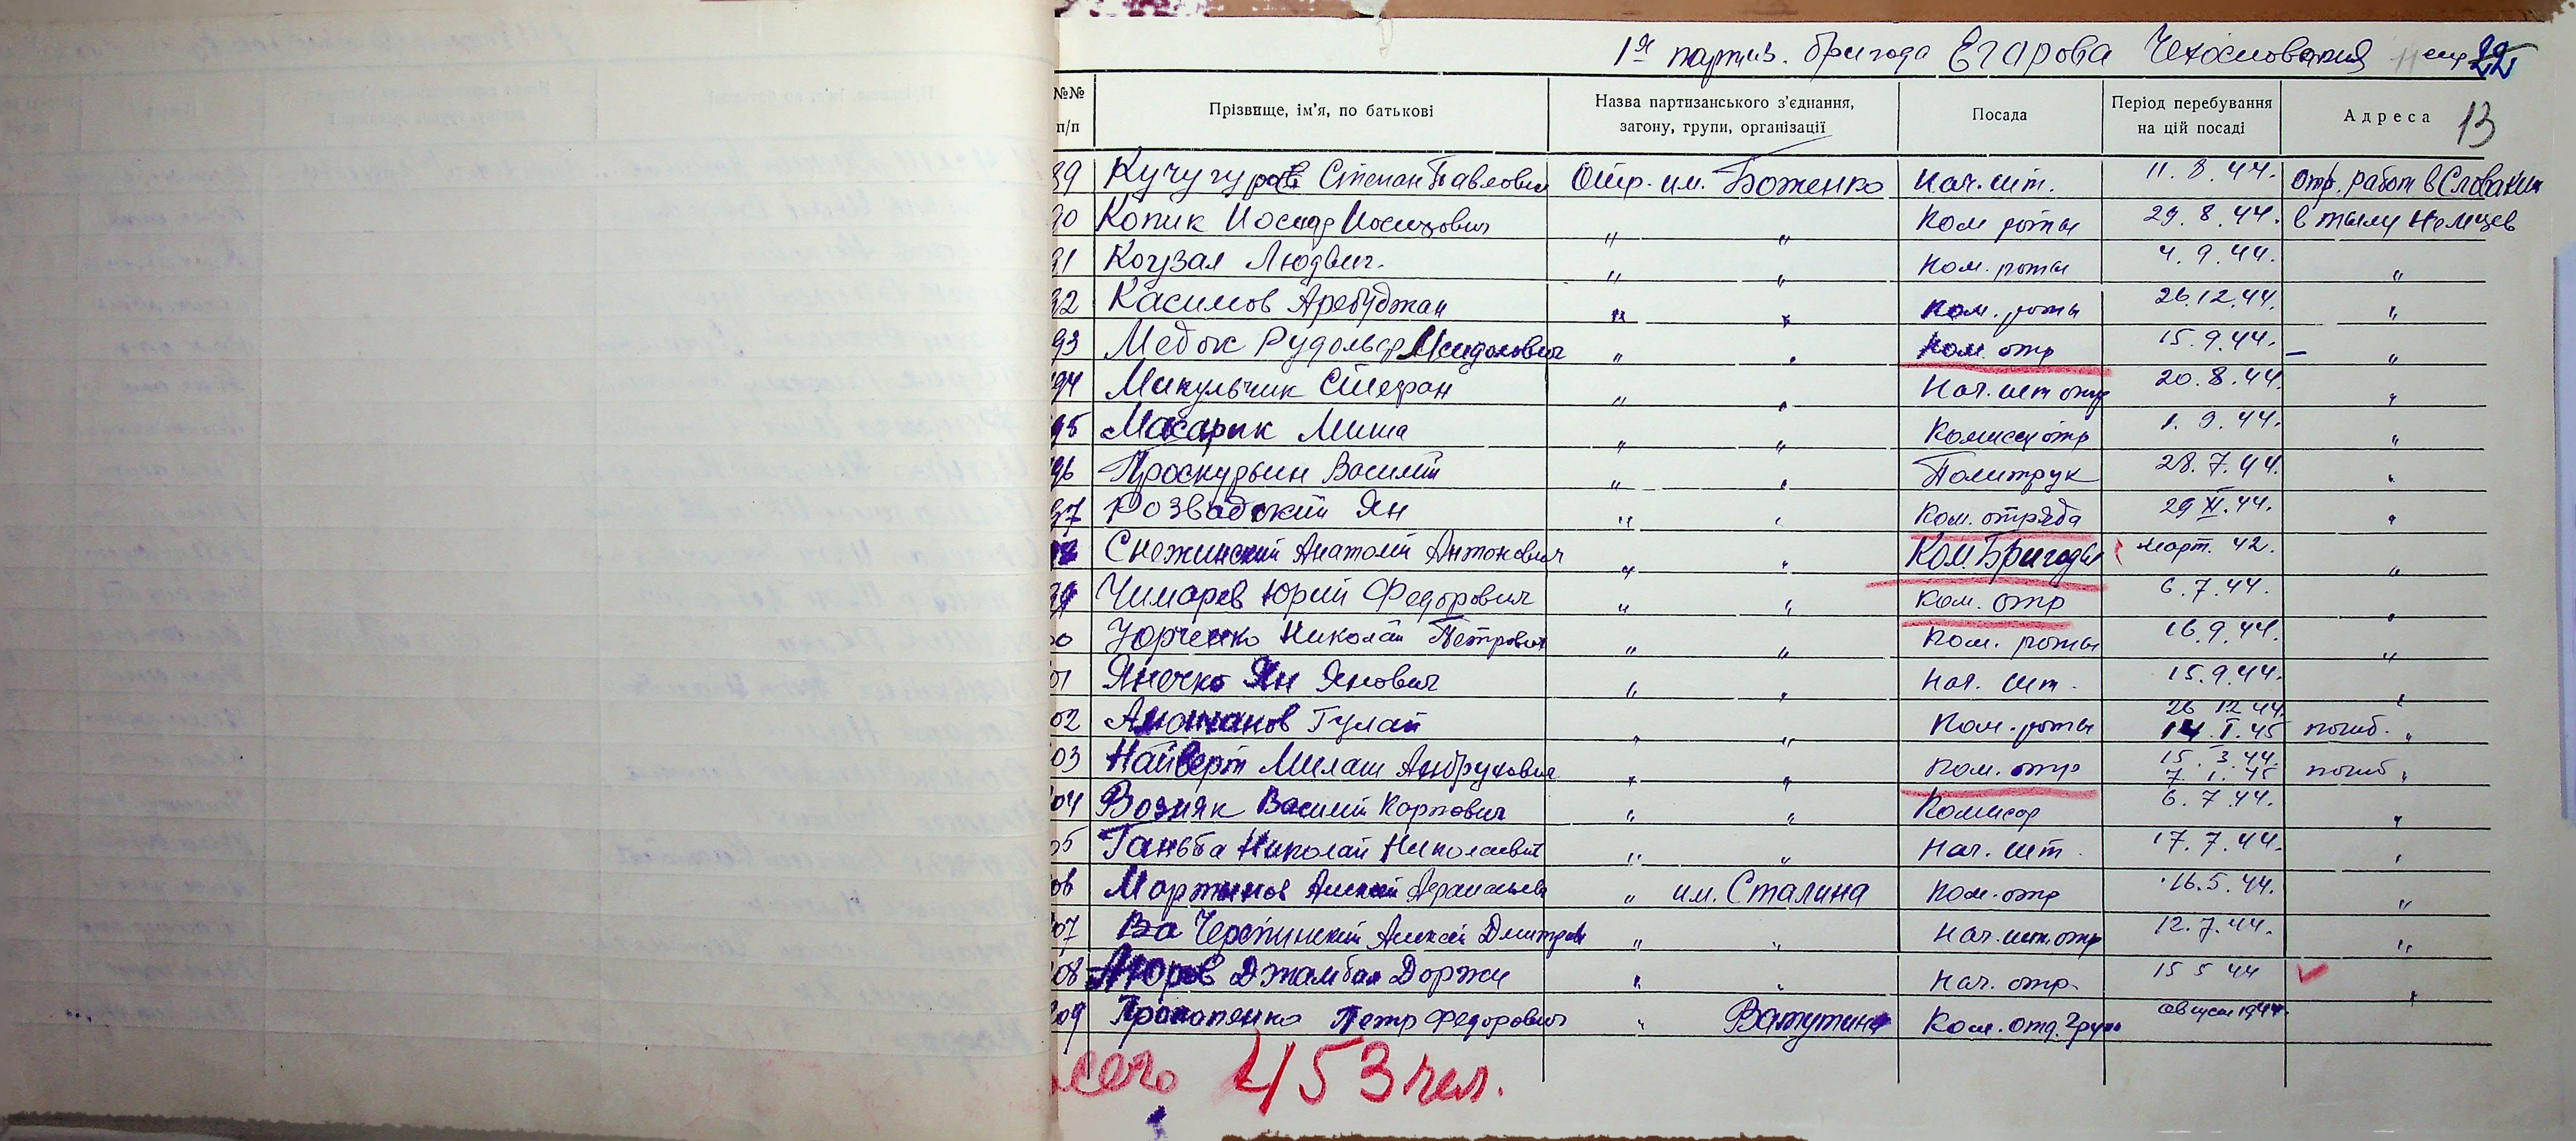 1я партиз. бригада Егарова Чехословакия 22
№№ п/п Прізвище, ім'я, по батькові Назва партизанського з'єднання, загону, групи, організації Посада Період перебування на цій посаді Адреса 13
89 Кучугура Степан Павлович Отр. им. Боженко Нач. шт. 11. 8. 44. отр. работ в Словакии
90 Копик Иосиф Иосифович " " Ком роты 29. 8. 44. в тылу Немцев
91 Когузал Людвиг. " " Ком. роты 4. 9. 44. "
92 Касимов " " Ком. роты 26. 12. 44. "
93 Медок Рудольф " " Ком. отр 15. 9. 44. – "
94 Микульчик Стефан " " Нач. шт отр 20. 8. 44. "
95 Масарык Миша " " Комиссар отр 1. 9. 44. "
96 Проскурьин Василий " " Политрук 28. 7. 44. "
97 Розвадский Ян " " Ком. отряда 29 XI. 44. "
Снежинский Анатолий Антонович " " Ком Бригады март. 42. "
Чимарев Юрий Федорович " " Ком. отр 6. 7. 44. "
Юрченко Николай Петрович " " Ком. роты 16. 9. 44. "
01 Янечко Ян Янович " " Нач. шт. 15. 9. 44. "
02 Гулам " " Ком. роты 26 12 44. 14. I. 45 погиб. "
03 Найверт Милаш " " Ком. отр 15. 3. 44. 7. 1. 45 погиб "
04 Возняк Василий Карпович " " Комисар 6. 7. 44. "
05 Ганьба Николай Николаевич " " Нач. шт. 17. 7. 44. "
06 Мартынов Алексей " им. Сталина Ком. отр 16. 5. 44. "
07 Ва Черепинский Алексей Дмитров " " Нач. шт. отр 12. 7. 44. "
08 Джамбал Доржи " " Нач. отр. 15 5 44 "
09 Прокопенко Петр Федорович " Ватутина Ком. отд. груп август 1944.
сего 453 чел.